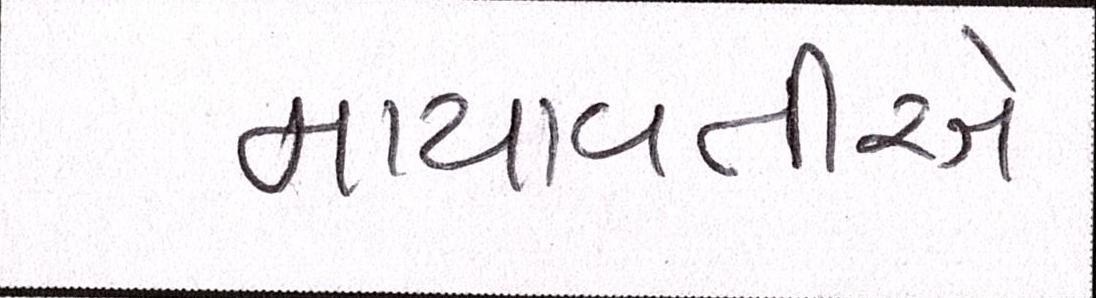 માયાવતીએ